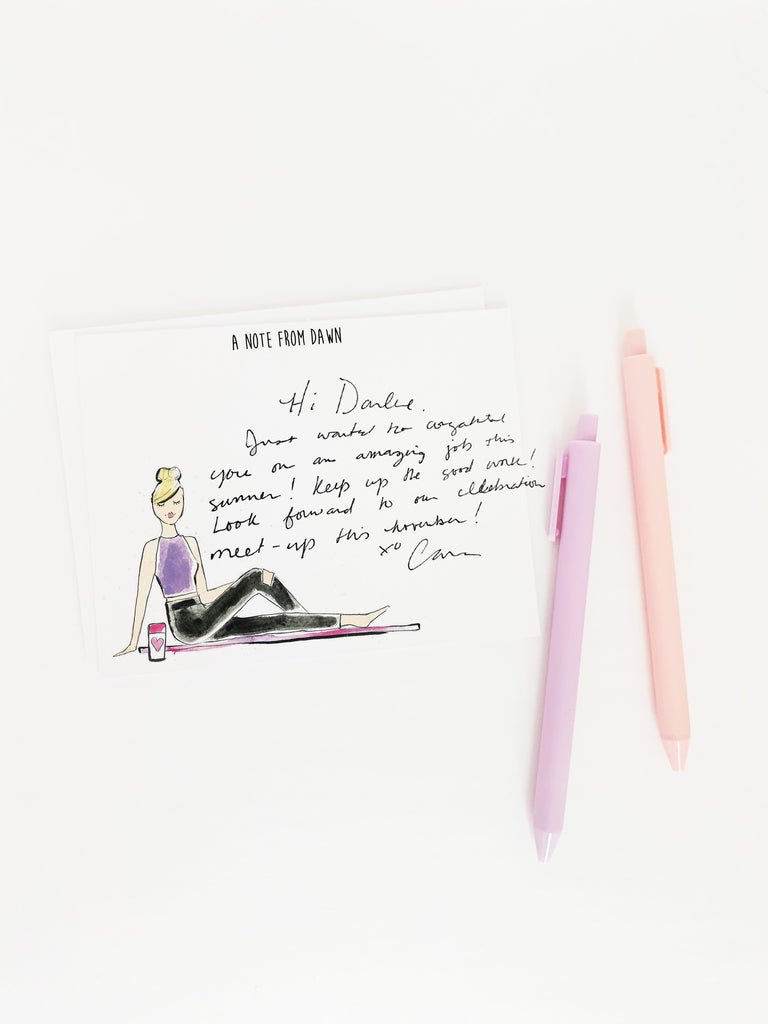 A NOTE FROM DAWN
Hi Darlee.
Just wanted to
you on an amazing job this
summer! Keep up the good work!
Look forward to our celebration
meet-up this November!
xo